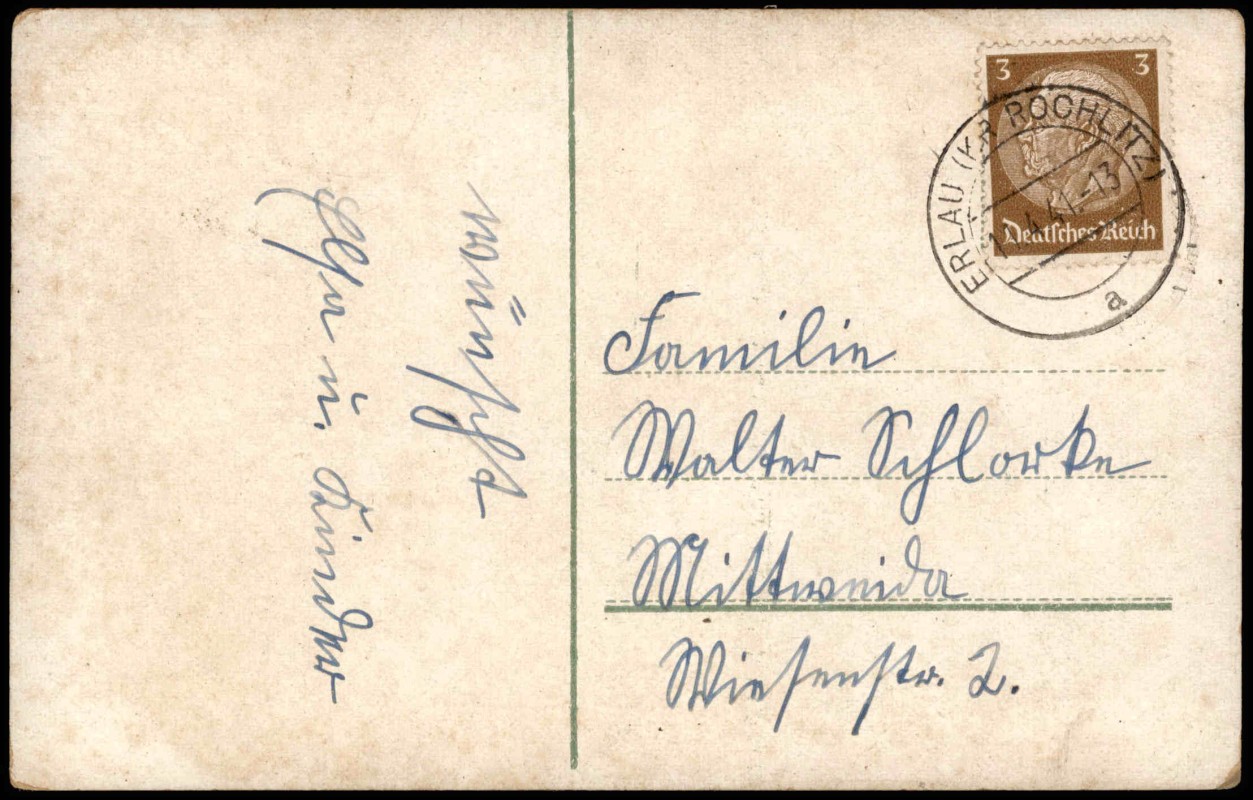 wünscht
u. Kinder
3 3
Deutsches Reich
ERLAU (KR ROCHLITZ)
4.41.-13
a
Familie
Walter Schlorke
Mittweida
Wiesenstr. 2.